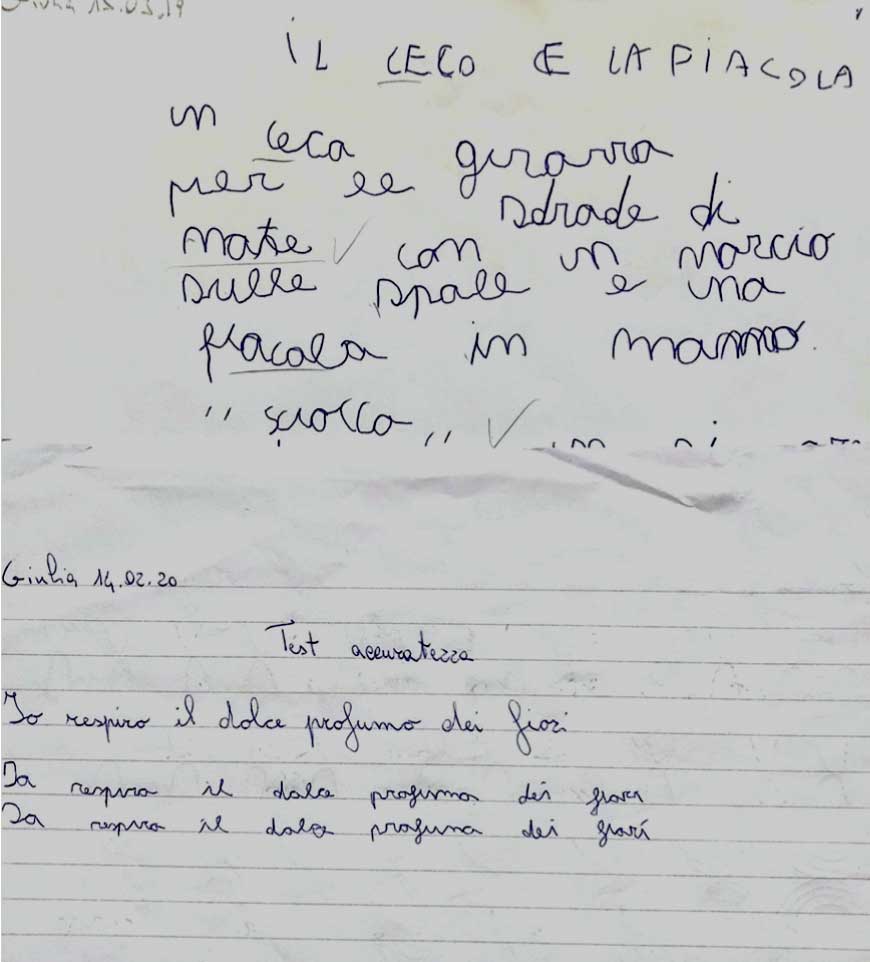 Giulia 15.03.19
IL CECO E LA PIACOLA
un
ceca girarra
per le sdrade di
notte con un marcio
sulle spale e una
fiacola in manno.
" sciocco "
Giulia 14.02.20
Test accuratezza
Io respiro il dolce profumo dei fiori
Ia respira il dolce profuma dei fiori
Ia respira il dolce profuma dei fiori